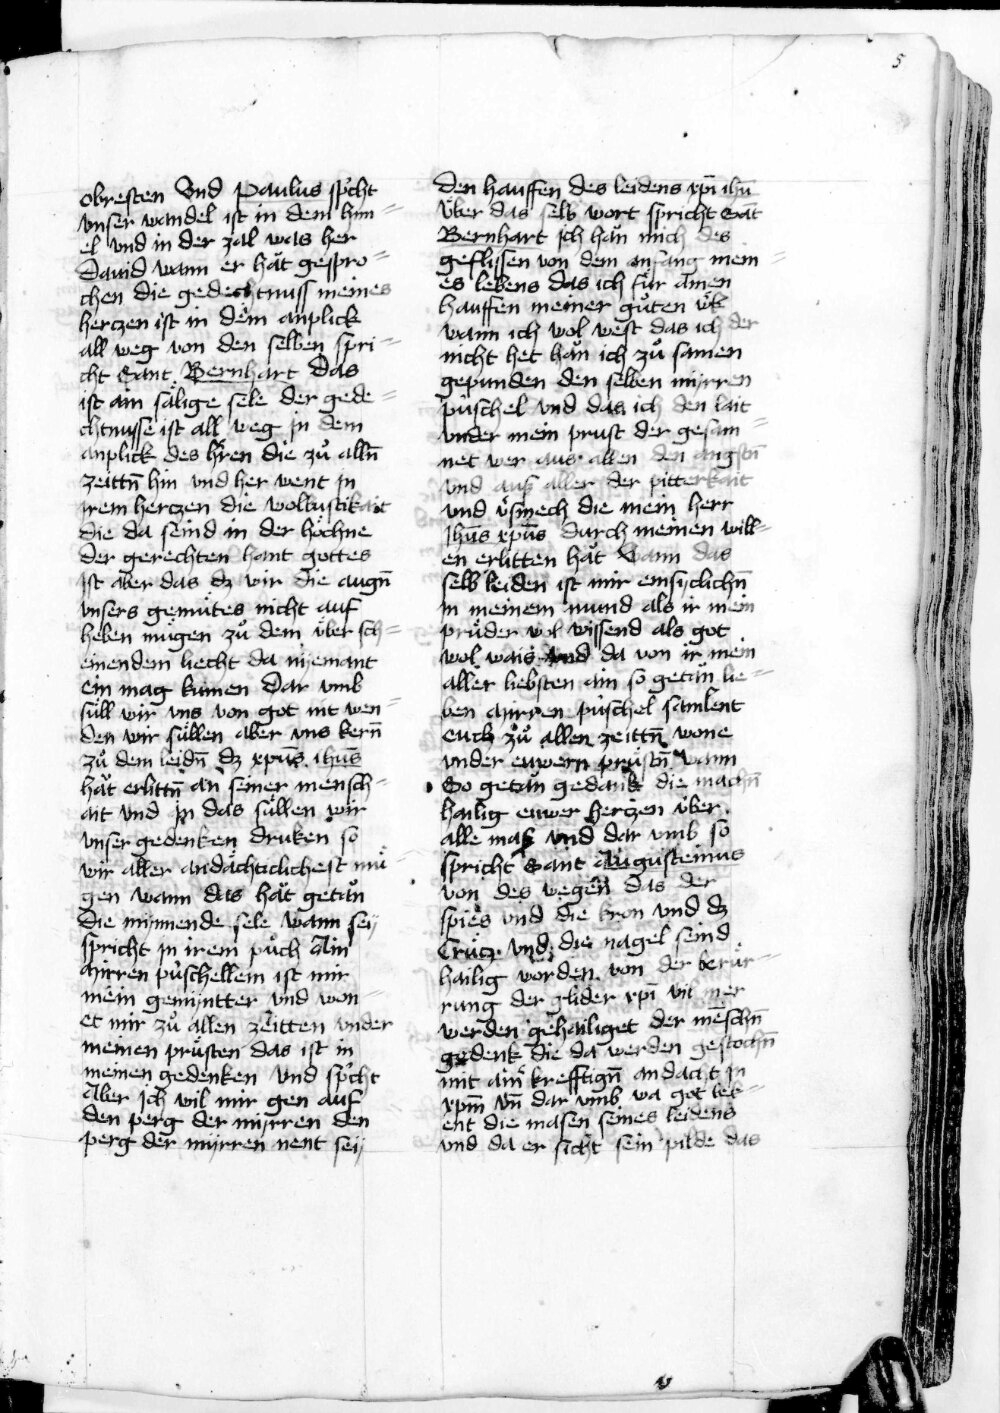 5
obresten Vnd Paulus sp̾cht
vnser wandel ist in dem him=
el vnd in der zal was her
Dauid wann er hät gespro=
chen die gedechtnuss meines
hertzen ist in dem anplick
all weg von den selben spri=
cht Sant Bernhart Das
ist ain sälige sele der gede=
chtnusse ist all weg in dem
anplick des hr̄ren die zů alln̄
zeittn̄ hin vnd her went jn
irem hertzen die wollustikait
die da seind in der höchne
der gerechten hant gottes
Ist aber das dz wir die augn̄
vnsers gemütes nicht auf
heben mügen zů dem über sch=
einendem liecht da nyemant
ein mag kumen Dar vmb
süll wir vns von got nit wen=
den wir süllen aber vns kern̄
zů dem leidn̄ dz xpūs ihūs
hät erlittn̄ an seiner mensch=
ait vnd jn das süllen wir
vnser gedencken drucken so
wir aller andächticlichest mü=
gen wann das hät getän
die mynnende sele wann sey
spricht jn irem půch Ain
mirren püschellein ist mir
mein gemyntter vnd won=
et mir zů allen zeitten vnder
meinen prüsten das ist in
meinen gedenken vnd sp̾cht
Aber ich wil mir gen auf
den perg der mirren den
perg der myrren nent sey
den hauffen des leidens xpī ihū
Über das selb wort spricht Sāt
Bernhart Ich hän mich des
geflissen von dem anfang mein=
es lebens das ich für ainen
hauffen meiner güten
wann ich wol west das ich der
nicht het hän ich zů samen
gepunden den selben myrren
püschel vnd das ich den lait
vnder mein prust der gesam=
net wer aus allen den angstn̄
vnd auß aller der pitterkait
vnd v̈smech die mein herr
Ihūs xpūs durch meinen will=
en erlitten hät Wann das
selb leiden ist mir emsyclichn̄
in meinem mund als ir mein
prüder wol wissend als got
wol wais vnd da von ir mein
aller liebsten ain so getän lie=
ben mirren puschel samlent
euch zů allen zeittn̄ wone
vnder euwern prüstn̄ wann
So getän gedank die machn̄
hailig euwer hertzen über
alle maß vnd dar vmb so
spricht Sant Augusteinus
von des wegen das der
spies vnd die kron vnd dz
Crütz vnd die nagel seind
hailig worden von der berür=
rung der glider xpī vil mer
werden gehailiget der mēschn̄
gedenk die da werden gestochn̄
mit ainr̄ krefftign̄ andacht jn
xpm̄ vn̄ dar vmb wa got
ent die masen seines leidens
vnd da er sicht sein pilde das